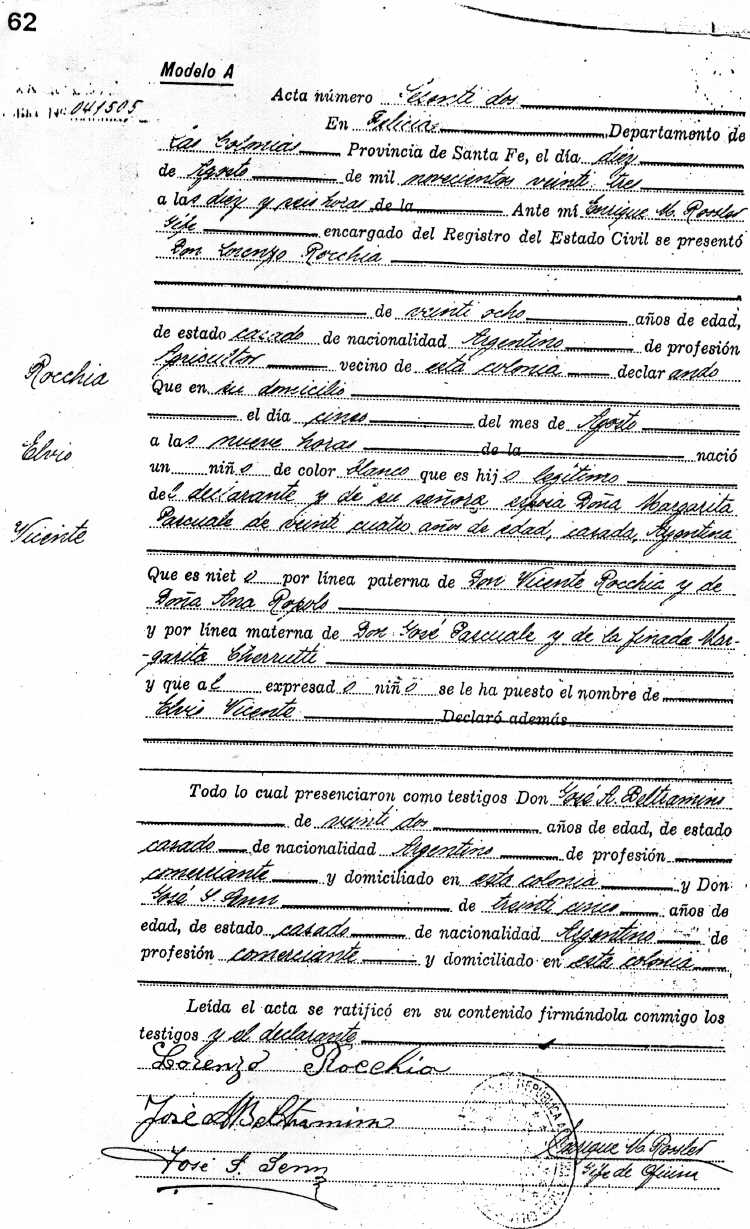 62
Modelo A
041505
Acta número Sesenti dos
En Felicia Departamento de
Las Colonias Provincia de Santa Fe, el día diez
de Agosto de mil novecientos veinti tres
a las diez y seis horas de la Ante mí Enrique M. Rossler
Gefe encargado del Registro del Estado Civil se presentó
Don Lorenzo Rocchia
de veinti ocho años de edad,
de estado casado de nacionalidad Argentino de profesión
Agricultor vecino de esta colonia declarando
Que en su domicilio
el día cinco del mes de Agosto
a las nueve horas de la nació
un niño de color blanco que es hijo legítimo
del declarante y de su señora esposa Doña Margarita
Pascuale de veinti cuatro años de edad, casada, Argentina
Que es nieto por línea paterna de Don Vicente Rocchia y de
Doña Ana Ropolo
y por línea materna de Don José Pascuale y de la finada Mar-
-garita Cherrutti
y que al expresado niño se le ha puesto el nombre de
Elvio Vicente Declaró además
Rocchia
Elvio
Vicente
Todo lo cual presenciaron como testigos Don José A. Beltramino
de veinti dos años de edad, de estado
casado de nacionalidad Argentino de profesión
comerciante y domiciliado en esta colonia y Don
José S. Senn de treinti cinco años de
edad, de estado casado de nacionalidad Argentino de
profesión comerciante y domiciliado en esta colonia
Leída el acta se ratificó en su contenido firmándola conmigo los
testigos y el declarante
Lorenzo Rocchia
José A Beltramino
José S. Senn
Enrique M. Rossler
Gefe de Oficina
REPUBLICA A